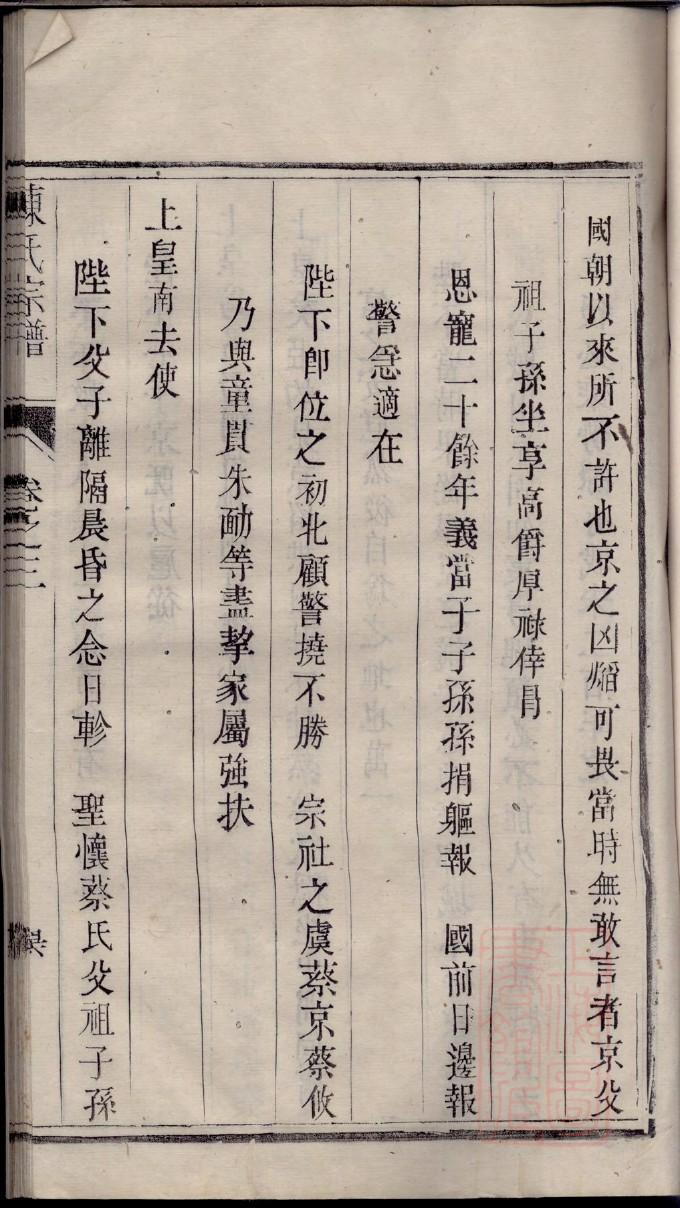 國朝以來所不許也京之凶燄可畏當時無敢言者京父
祖子孫坐享高爵厚祿倖冒
恩寵二十餘年義當子子孫孫捐軀報 國前日邊報
警急適在
陛下卽位之初北顧警撓不勝 宗社之虞蔡京蔡攸
乃與童貫朱勔等盡挈家屬強扶
上皇南去使
陛下父子離隔晨昏之念日軫 聖懷蔡氏父祖子孫
陳氏宗譜 卷之三